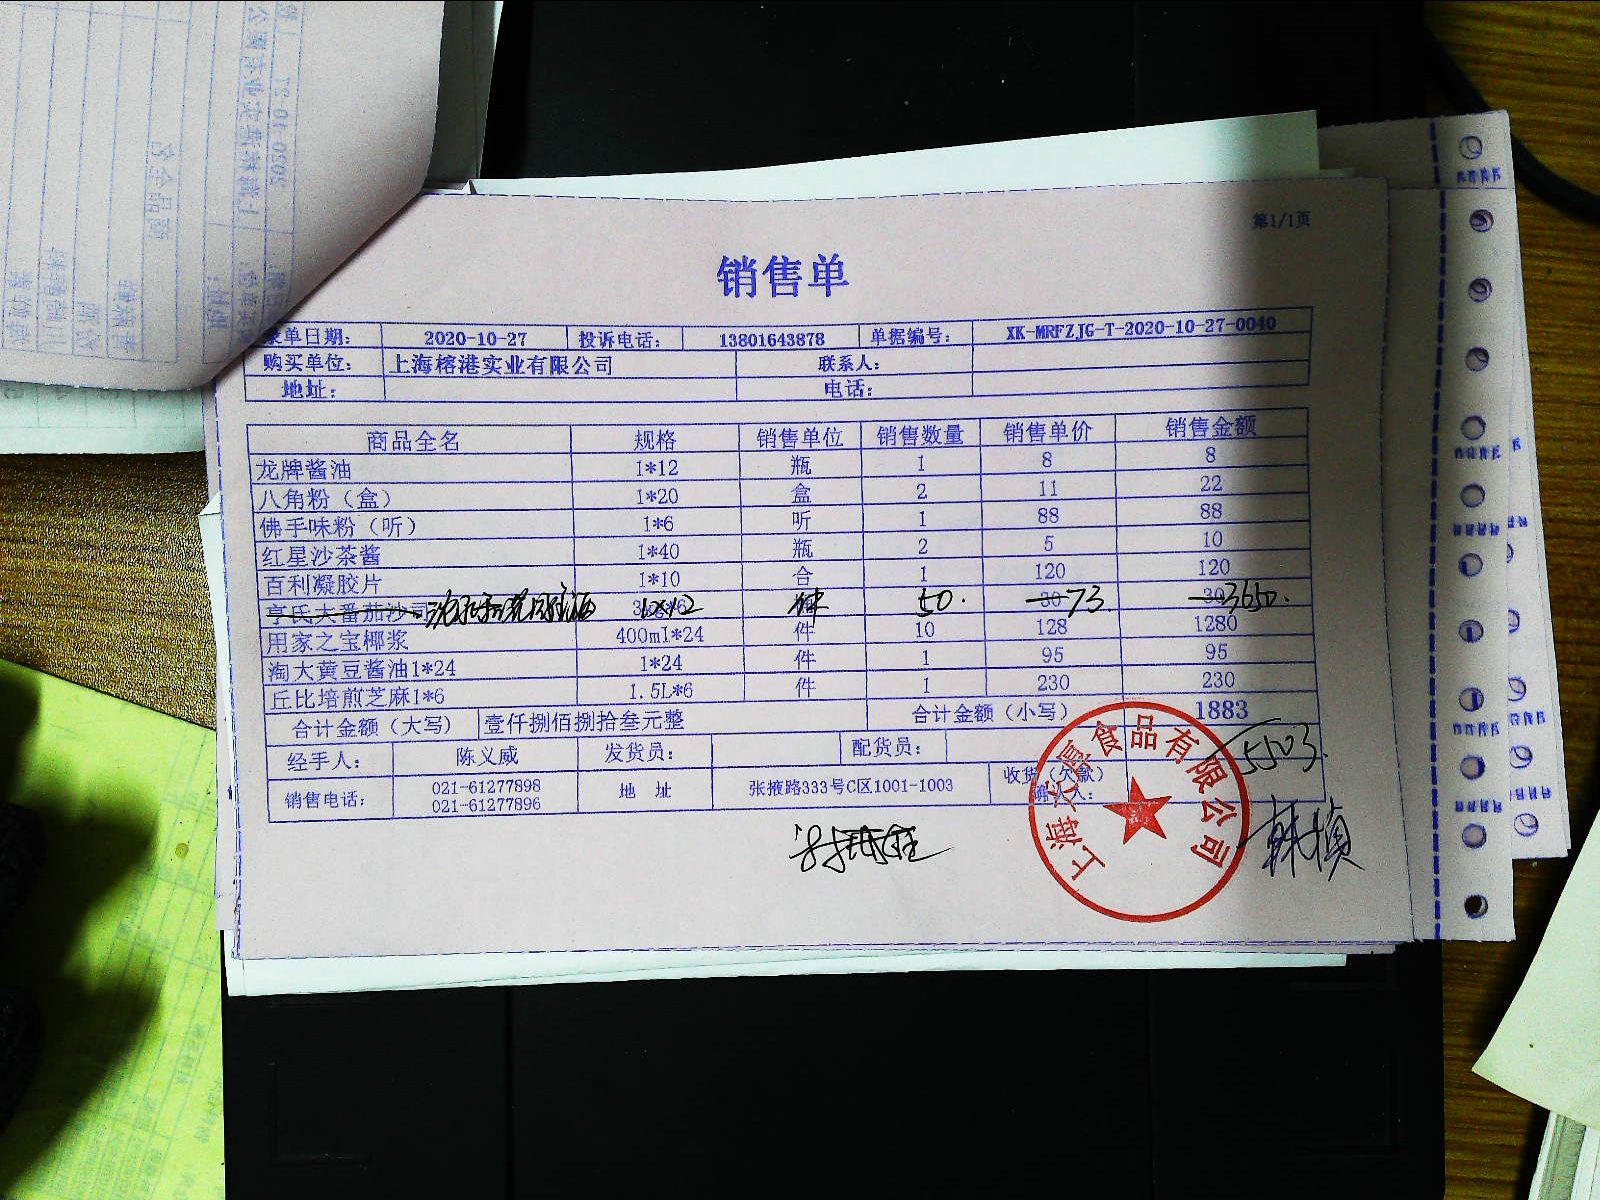 第1/1页
销售单
录单日期： 2020-10-27 投诉电话： 13801643878 单据编号： XK-MRFZJG-T-2020-10-27-0040
购买单位： 上海榕港实业有限公司 联系人：
地址： 电话：
商品全名 规格 销售单位 销售数量 销售单价 销售金额
龙牌酱油 1*12 瓶 1 8 8
八角粉（盒） 1*20 盒 2 11 22
佛手味粉（听） 1*6 听 1 88 88
红星沙茶酱 1*40 瓶 2 5 10
百利凝胶片 1*10 合 1 120 120
亨氏大番茄沙司 1×12 件 50. 30 73. 30 3650.
用家之宝椰浆 400ml*24 件 10 128 1280
淘大黄豆酱油1*24 1*24 件 1 95 95
丘比培煎芝麻1*6 1.5L*6 件 1 230 230
合计金额（大写） 壹仟捌佰捌拾叁元整 合计金额（小写） 1883
5503.
经手人： 陈义威 发货员： 配货员：
销售电话： 021-61277898 地 址 张掖路333号C区1001-1003 收货（欠款）
021-61277896 确认人：
上海 食品有限公司
韩桢